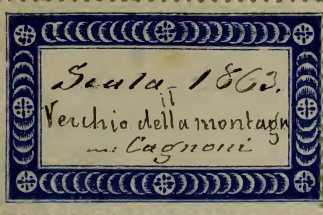 Scala - 1863.
il
Vecchio della montagn
m: Cagnoni